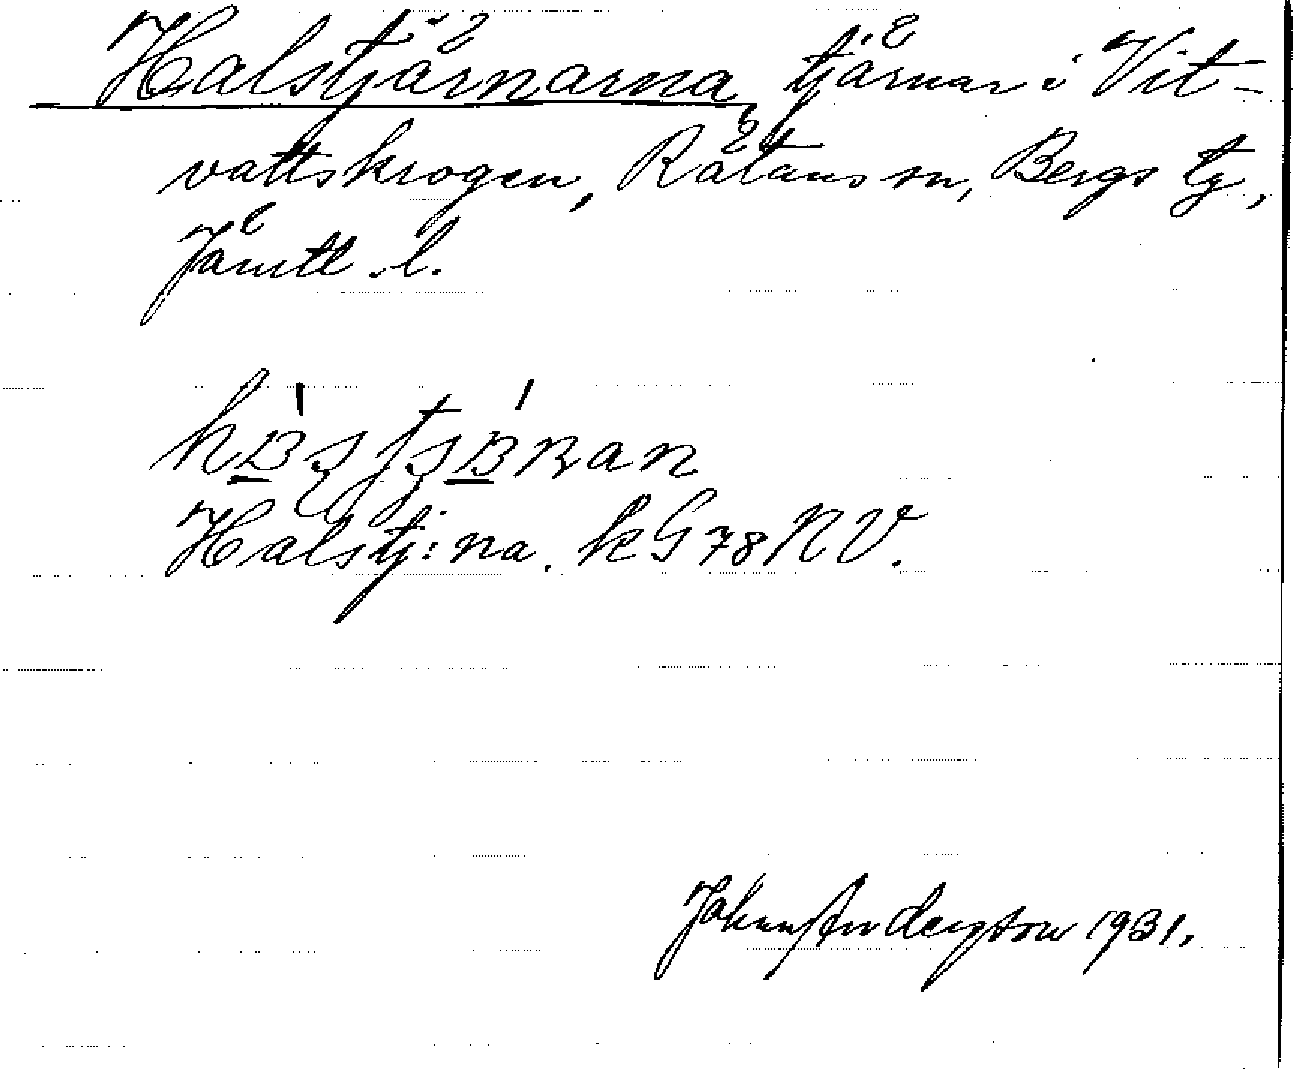 Halstjärnarna, tjärnar i Vit-
vattskrogen, Rätans sn, Bergs tg,
Jämtl. l.
Halstj:na. kG78NV.
John Andersson 1931.